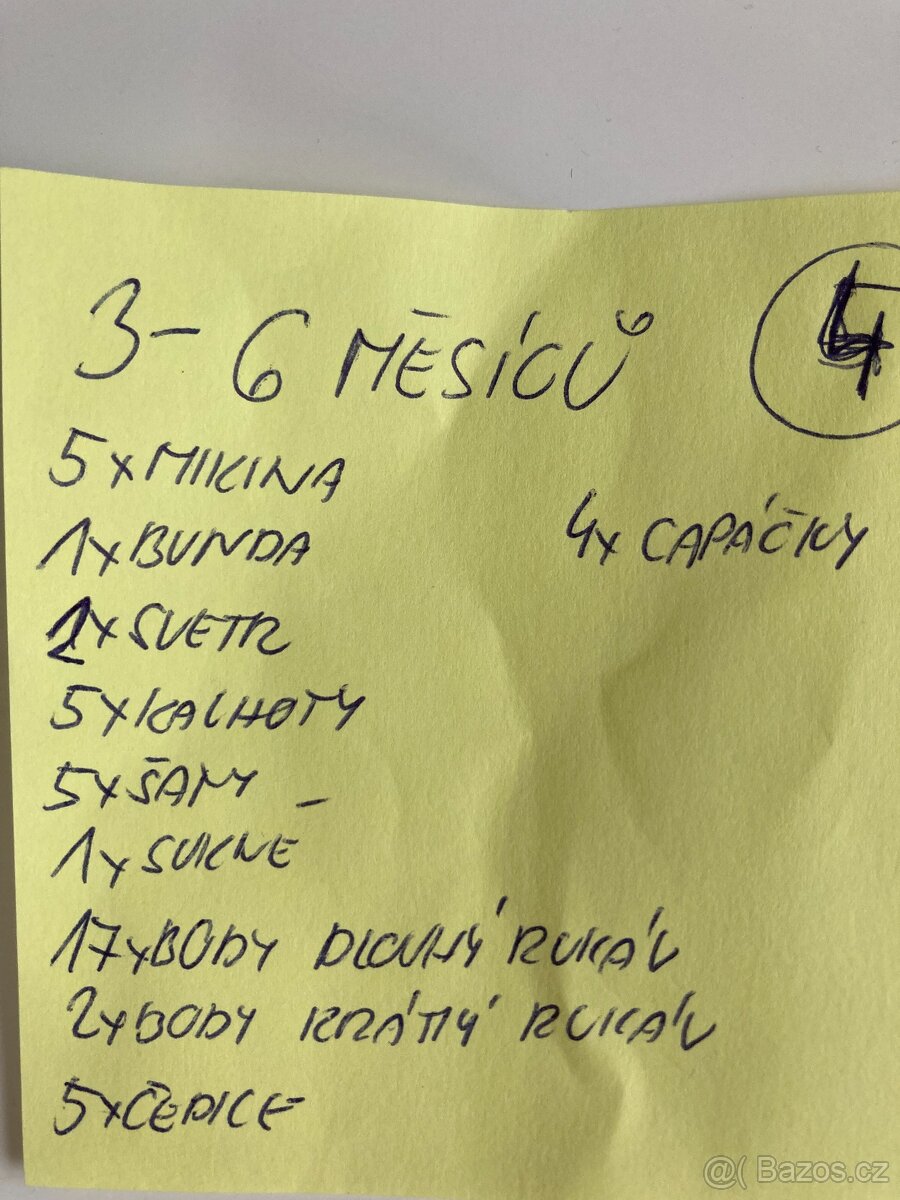 3-6 MĚSÍCŮ
4
5x MIKINA
1x BUNDA
4x CAPÁČKY
2x SVETR
5x KALHOTY
5x ŠATY
1x SUKNĚ
17x BODY DLOUHÝ RUKÁV
2x BODY KRÁTKÝ RUKÁV
5x ČEPICE
@( Bazos.cz